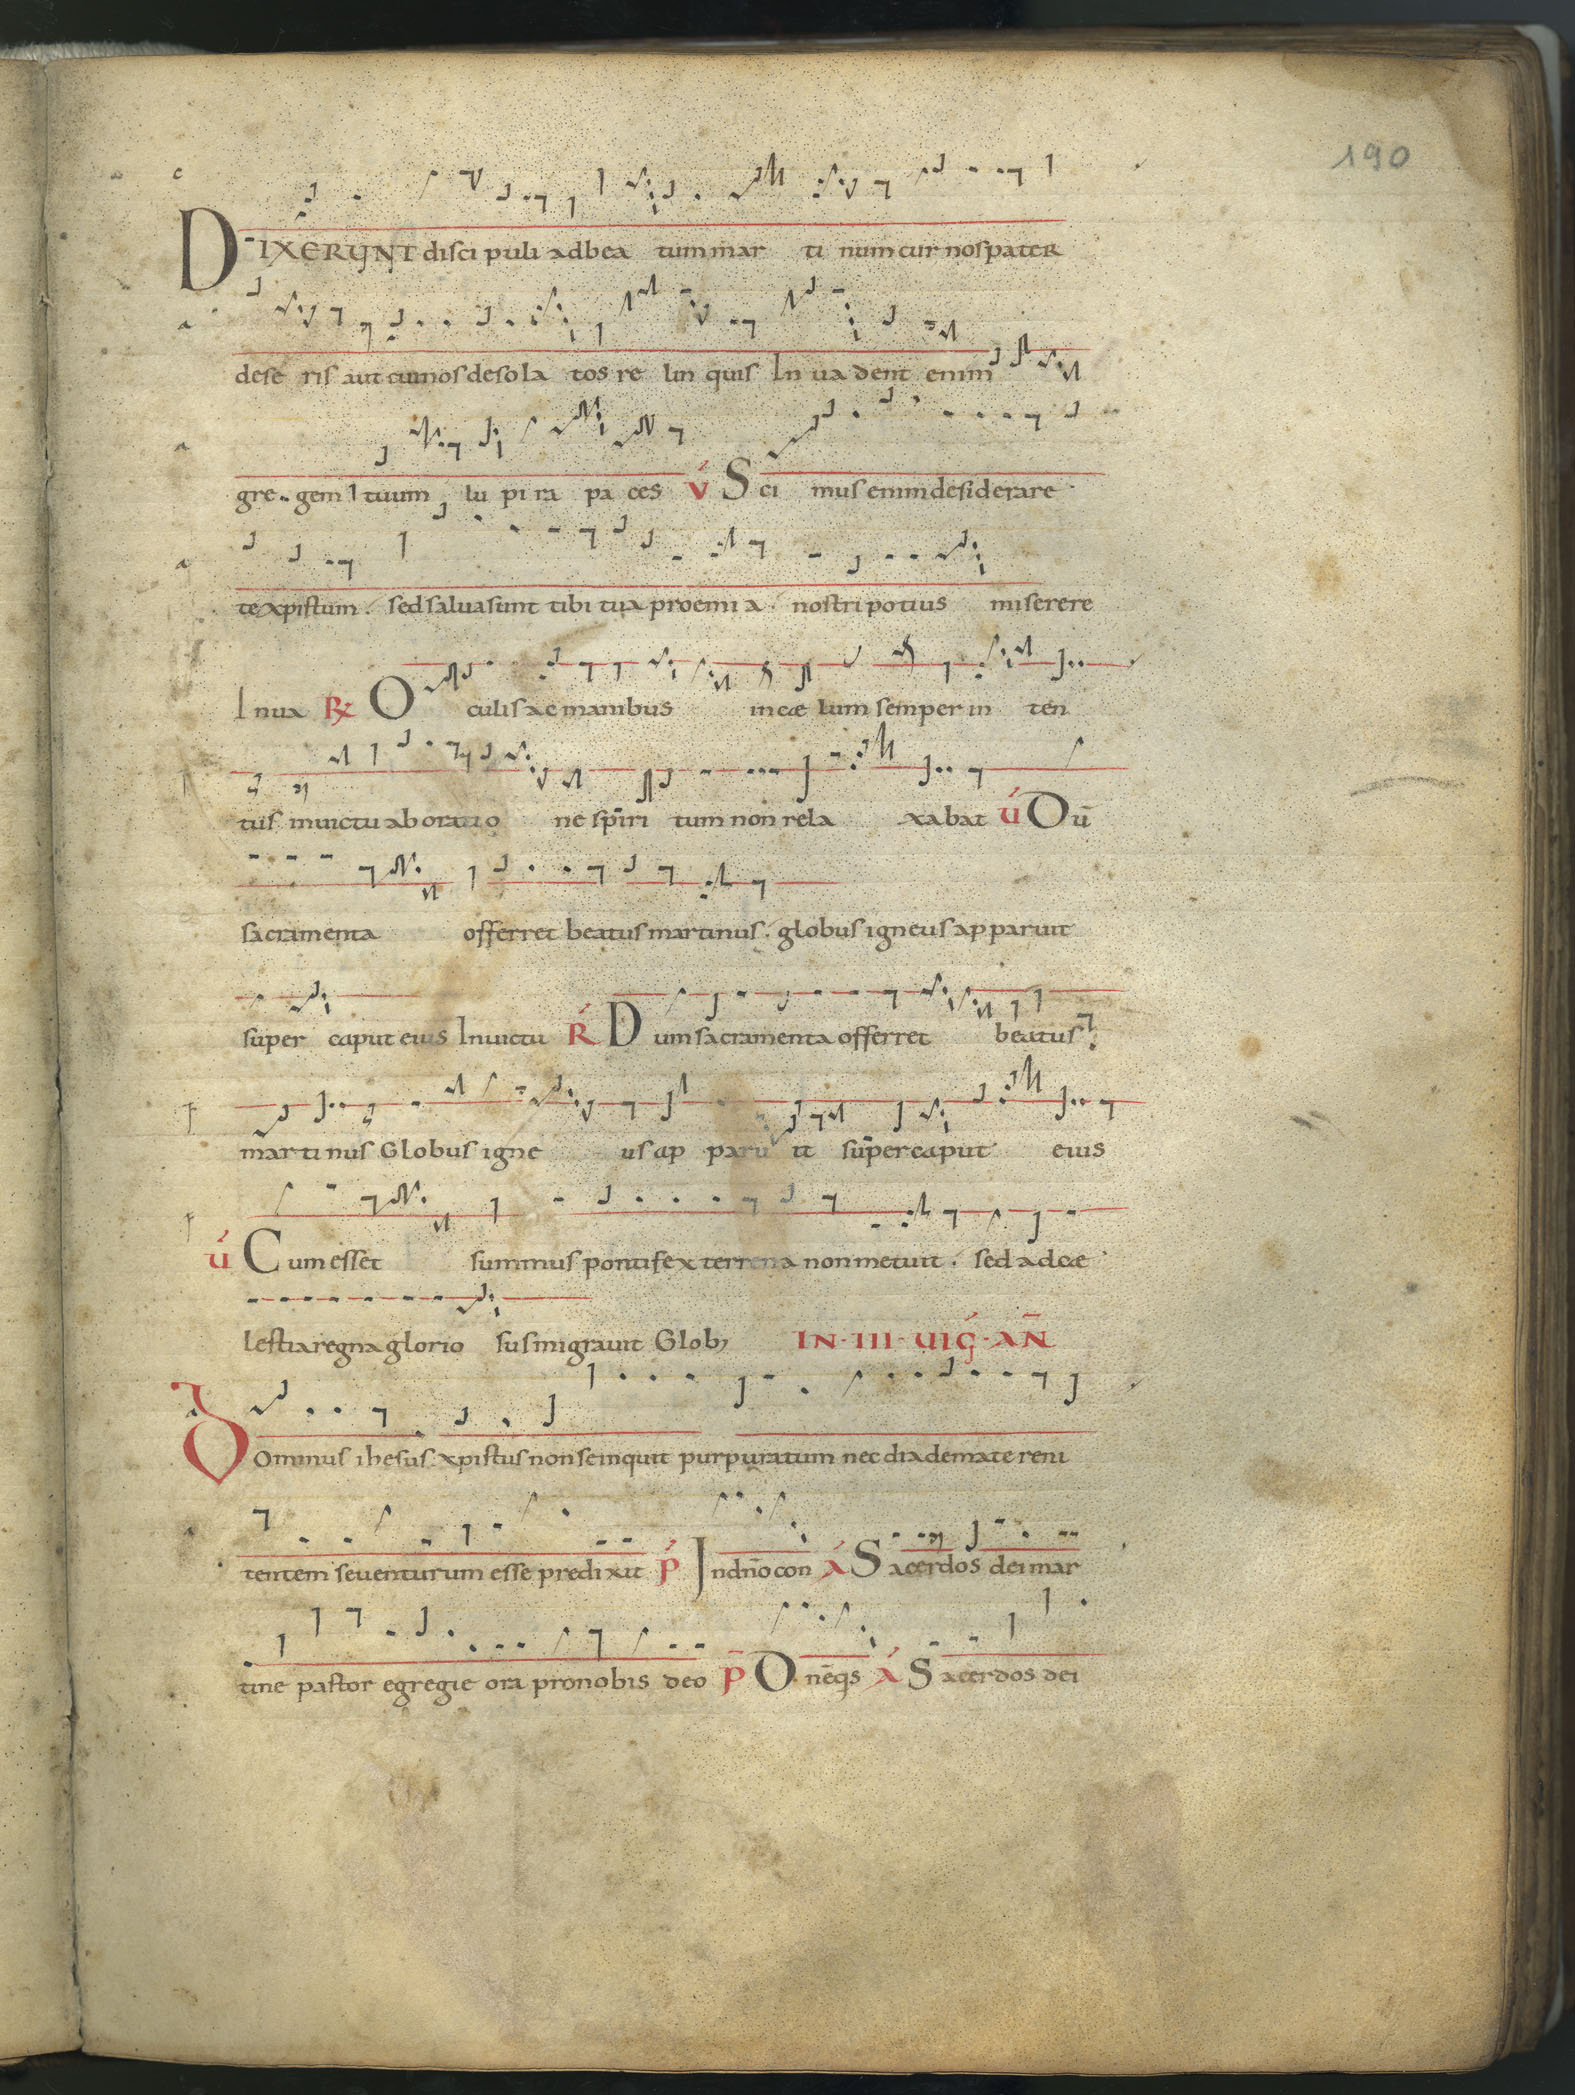 190
DIXERUNT discipuli adbea tummar ti numcur nospater
dese ris aut cuinosdesola tos re lin quis In uadent enim
gre gem tuum lu pi ra pa ces V Sci musenimdesiderare
texpistum. sedsaluasunt tibi tua proemia. nostripotius miserere
Inua R Oculisacmanibus incae lum semper in ten
tus inuictu aboratio ne spiri tum non rela xabat U Dū
sacramenta offerret beatusmartinus. globus igneus apparuit
super caput eius Inuictu R Dumsacramenta offerret beatus
martinus Globus igne us ap paru it supercaput eius
U Cum esset summus pontifex terrena nonmetuit. sed adcae
lestiaregnaglorio susmigrauit Glob;
IN·III·UIG·AÑ
Dominus ihesus xpistus nonseinquit purpuratum nec diademate reni
tentem seuenturum esse predixit P Indño con A Sacerdos deimar
tine pastor egregie ora pronobis deo P Onēqs A Sacerdos dei